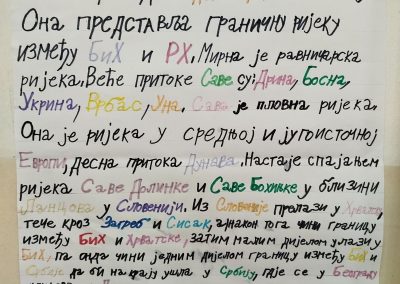 Она представља граничну ријеку
између БиХ и РХ. Мирна је равничарска
ријека. Веће притоке Саве су: Дрина, Босна,
Укрина, Врбас, Уна. Сава је пловна ријека.
Она је ријека у средњој и југоисточној
Европи, десна притока Дунава. Настаје спајањем
ријека Саве Долинке и Саве Бохињке у близини
у Словенији. Из Словеније пролази у
тече кроз Загреб и Сисак, а након тога чини границу
између БиХ и Хрватске, затим малим дијелом улази у
БиХ, па онда чини једним дијелом границу између БиХ и
Србије да би на крају ушла у Србију, гдје се у Београду